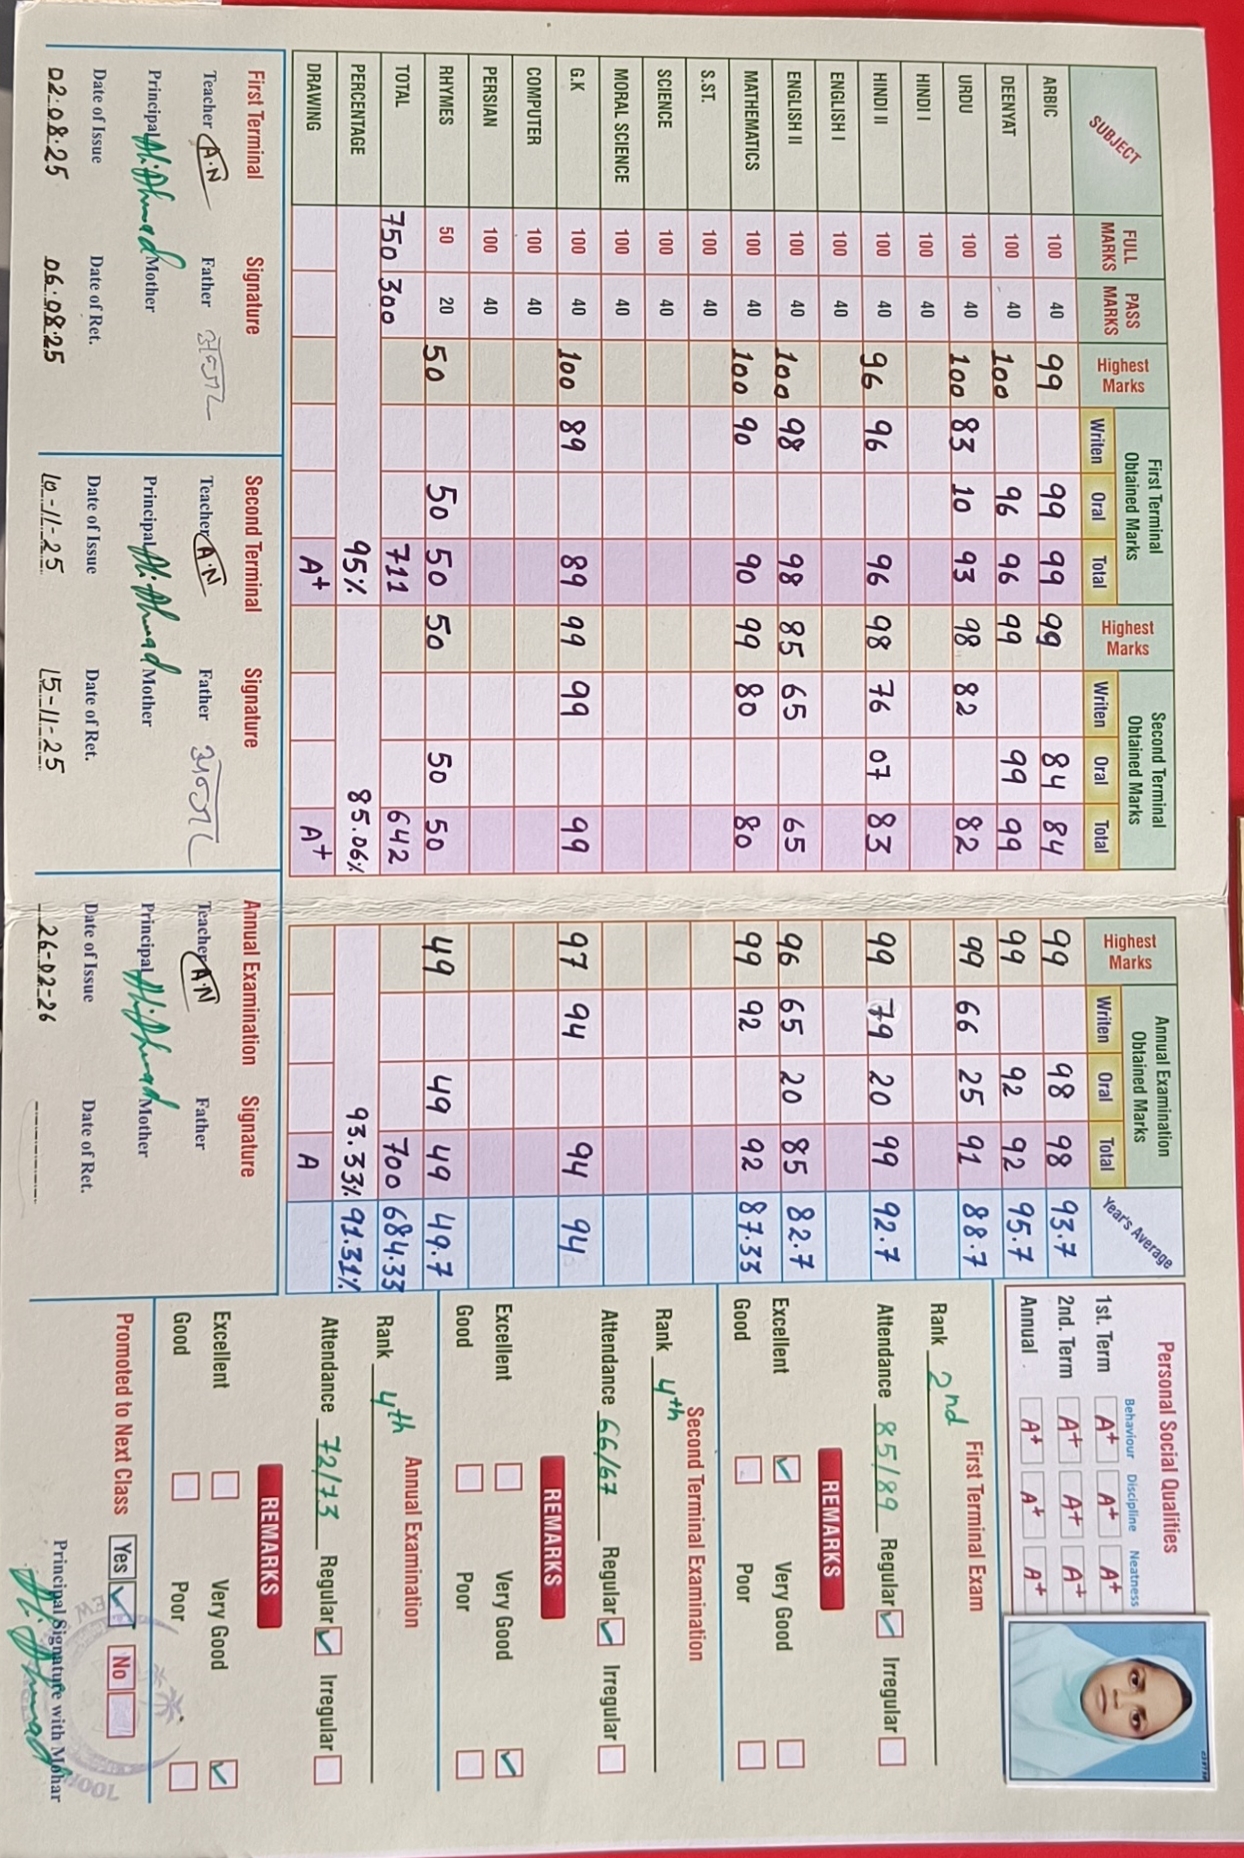 SUBJECT FULL MARKS PASS MARKS Highest Marks First Terminal Obtained Marks Writen Oral Total Highest Marks Second Terminal Obtained Marks Writen Oral Total Highest Marks Annual Examination Obtained Marks Writen Oral Total Year's Average
ARBIC 100 40 99 99 99 99 84 84 99 98 98 93.7
DEENYAT 100 40 100 96 96 99 99 99 99 92 92 95.7
URDU 100 40 100 83 10 93 98 82 82 99 66 25 91 88.7
HINDI I 100 40
HINDI II 100 40 96 96 96 98 76 07 83 99 79 20 99 92.7
ENGLISH I 100 40
ENGLISH II 100 40 100 98 98 85 65 65 96 65 20 85 82.7
MATHEMATICS 100 40 100 90 90 99 80 80 99 92 92 87.33
S.ST. 100 40
SCIENCE 100 40
MORAL SCIENCE 100 40
G.K 100 40 100 89 89 99 99 99 97 94 94 94
COMPUTER 100 40
PERSIAN 100 40
RHYMES 50 20 50 50 50 50 50 50 49 49 49 49.7
TOTAL 750 300 711 642 700 684.33
PERCENTAGE 95% 85.06% 93.33% 91.31%
DRAWING A+ A+ A
First Terminal Signature
Teacher A.N Father
Principal Ali Ahmad Mother
Date of Issue Date of Ret.
02.08.25 06.08.25
Second Terminal Signature
Teacher A.N Father
Principal Ali Ahmad Mother
Date of Issue Date of Ret.
10-11-25 15-11-25
Annual Examination Signature
Teacher A.N Father
Principal Ali Ahmad Mother
Date of Issue Date of Ret.
26-02-26
Personal Social Qualities
Behaviour Discipline Neatness
1st. Term A+ A+ A+
2nd. Term A+ A+ A+
Annual A+ A+ A+
First Terminal Exam
Rank 2nd
Attendance 85/89 Regular Irregular
REMARKS
Excellent Very Good
Good Poor
Second Terminal Examination
Rank 4th
Attendance 66/67 Regular Irregular
REMARKS
Excellent Very Good
Good Poor
Annual Examination
Rank 4th
Attendance 72/73 Regular Irregular
REMARKS
Excellent Very Good
Good Poor
Promoted to Next Class Yes No
Principal Signature with Mohar
Ali Ahmad